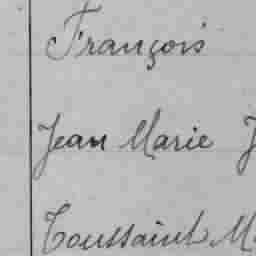 François
Jean Marie J
Toussaint M